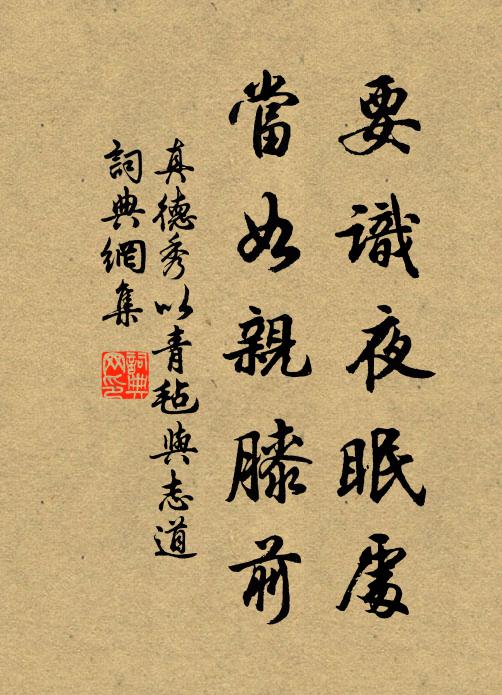 要識夜眠處
當如親膝前
真德秀以青毡與志道
詞典網集
詞典网印